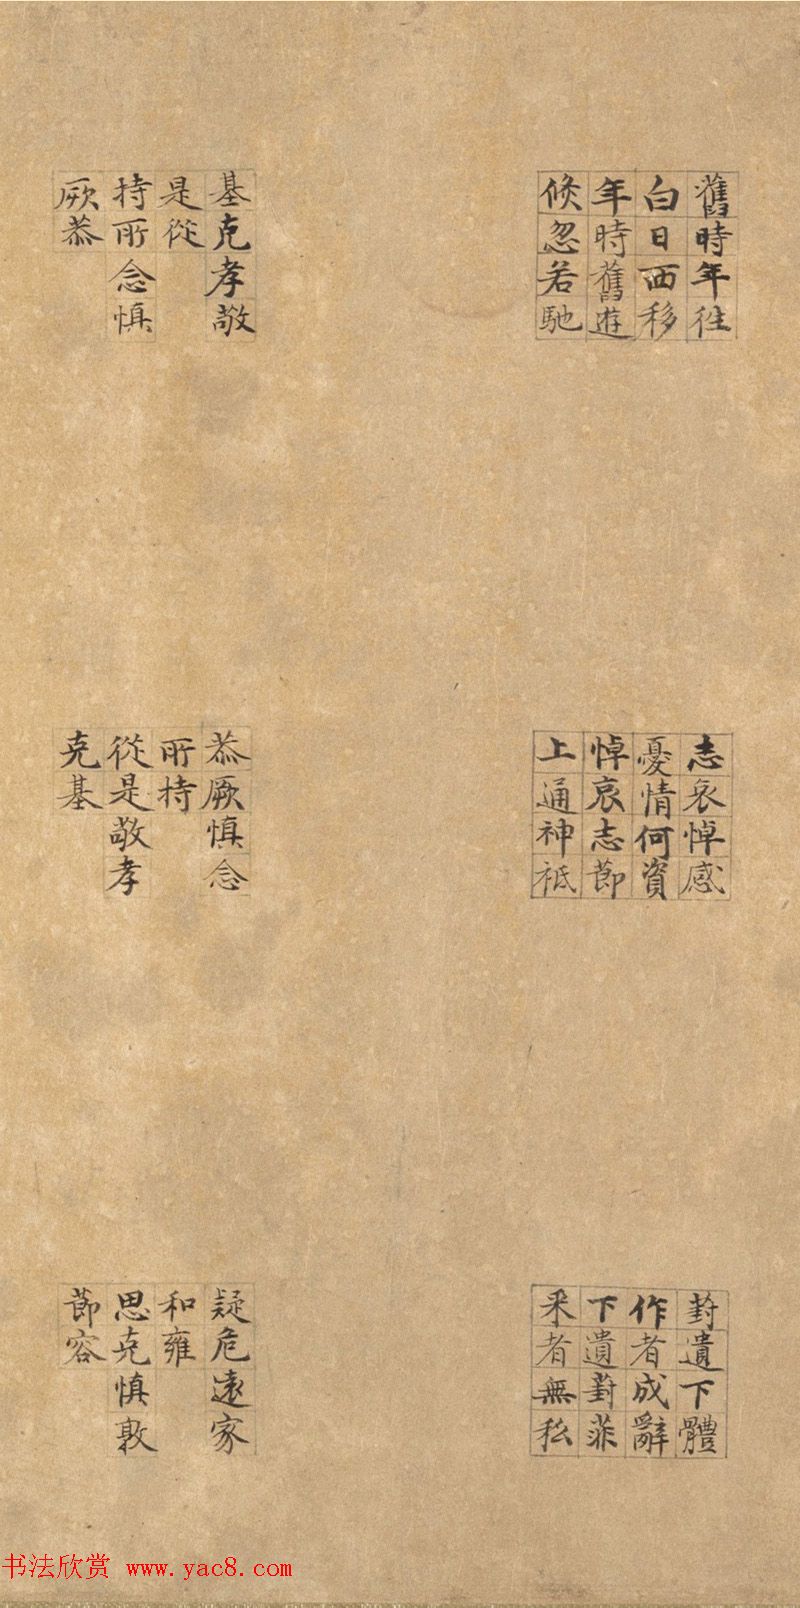 舊時年往
白日西移
年時舊遊
倐忽若馳
基克孝敬
是從
持所念慎
厥恭
志哀悼感
憂情何資
悼哀志節
上通神祗
恭厥慎念
所持
從是敬孝
克基
葑遺下體
作者成辭
下遺葑菲
采者無私
疑危遠家
和雍
思克慎敦
節容
书法欣赏 www.yac8.com